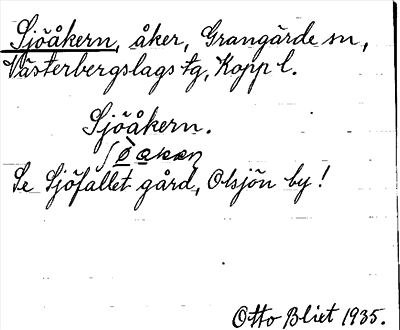 Sjöåkern, åker, Grangärde sn,
Västerbergslags tg, Kopp l.
Sjöåkern.
Se Sjöfallet gård, Olsjön by!
Otto Blixt 1935.